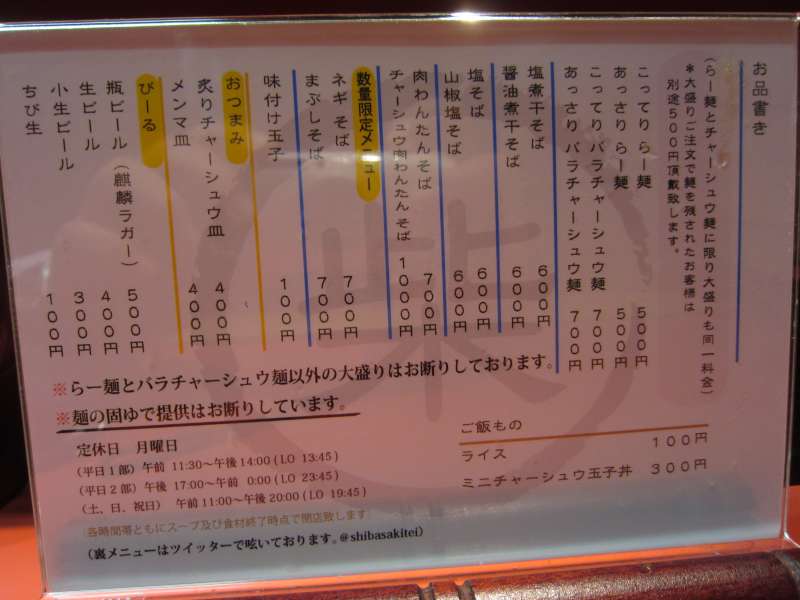 お品書き
(らー麺とチャーシュウ麺に限り大盛りも同一料金)
*大盛りご注文で麺を残されたお客様は
別途500円頂戴致します。
こってりらー麺 500円
あっさりらー麺 500円
こってりバラチャーシュウ麺 700円
あっさりバラチャーシュウ麺 700円
塩煮干そば 600円
醤油煮干そば 600円
塩そば 600円
山椒塩そば 600円
肉わんたんそば 700円
チャーシュウ肉わんたんそば 1000円
数量限定メニュー
ネギそば 700円
まぶしそば 700円
味付け玉子 100円
おつまみ
炙りチャーシュウ皿 400円
メンマ皿 400円
びーる
瓶ビール(麒麟ラガー) 500円
生ビール 400円
小生ビール 300円
ちび生 100円
※らー麺とバラチャーシュウ麺以外の大盛りはお断りしております。
※麺の固ゆで提供はお断りしています。
定休日 月曜日
(平日1部) 午前 11:30~午後14:00 ( LO 13:45)
(平日2部) 午後 17:00~午前 0:00 ( LO 23:45)
(土、日、祝日) 午前11:00~午後20:00 ( LO 19:45)
(各時間帯ともにスープ及び食材終了時点で閉店致します)
(裏メニューはツイッターで呟いております。@shibasakitei)
ご飯もの
ライス 100円
ミニチャーシュウ玉子丼 300円
柴